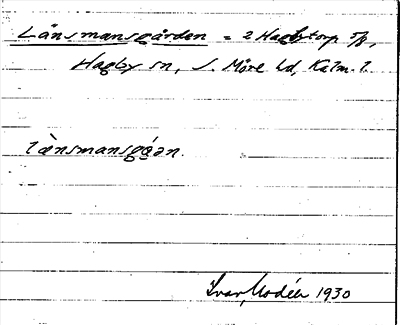 Länsmansgården = 2 Hagbytorp 5/8,
Hagby sn, S. Möre hd, Kalm. l.
lænsmansgáan.
Ivar Modéer 1930